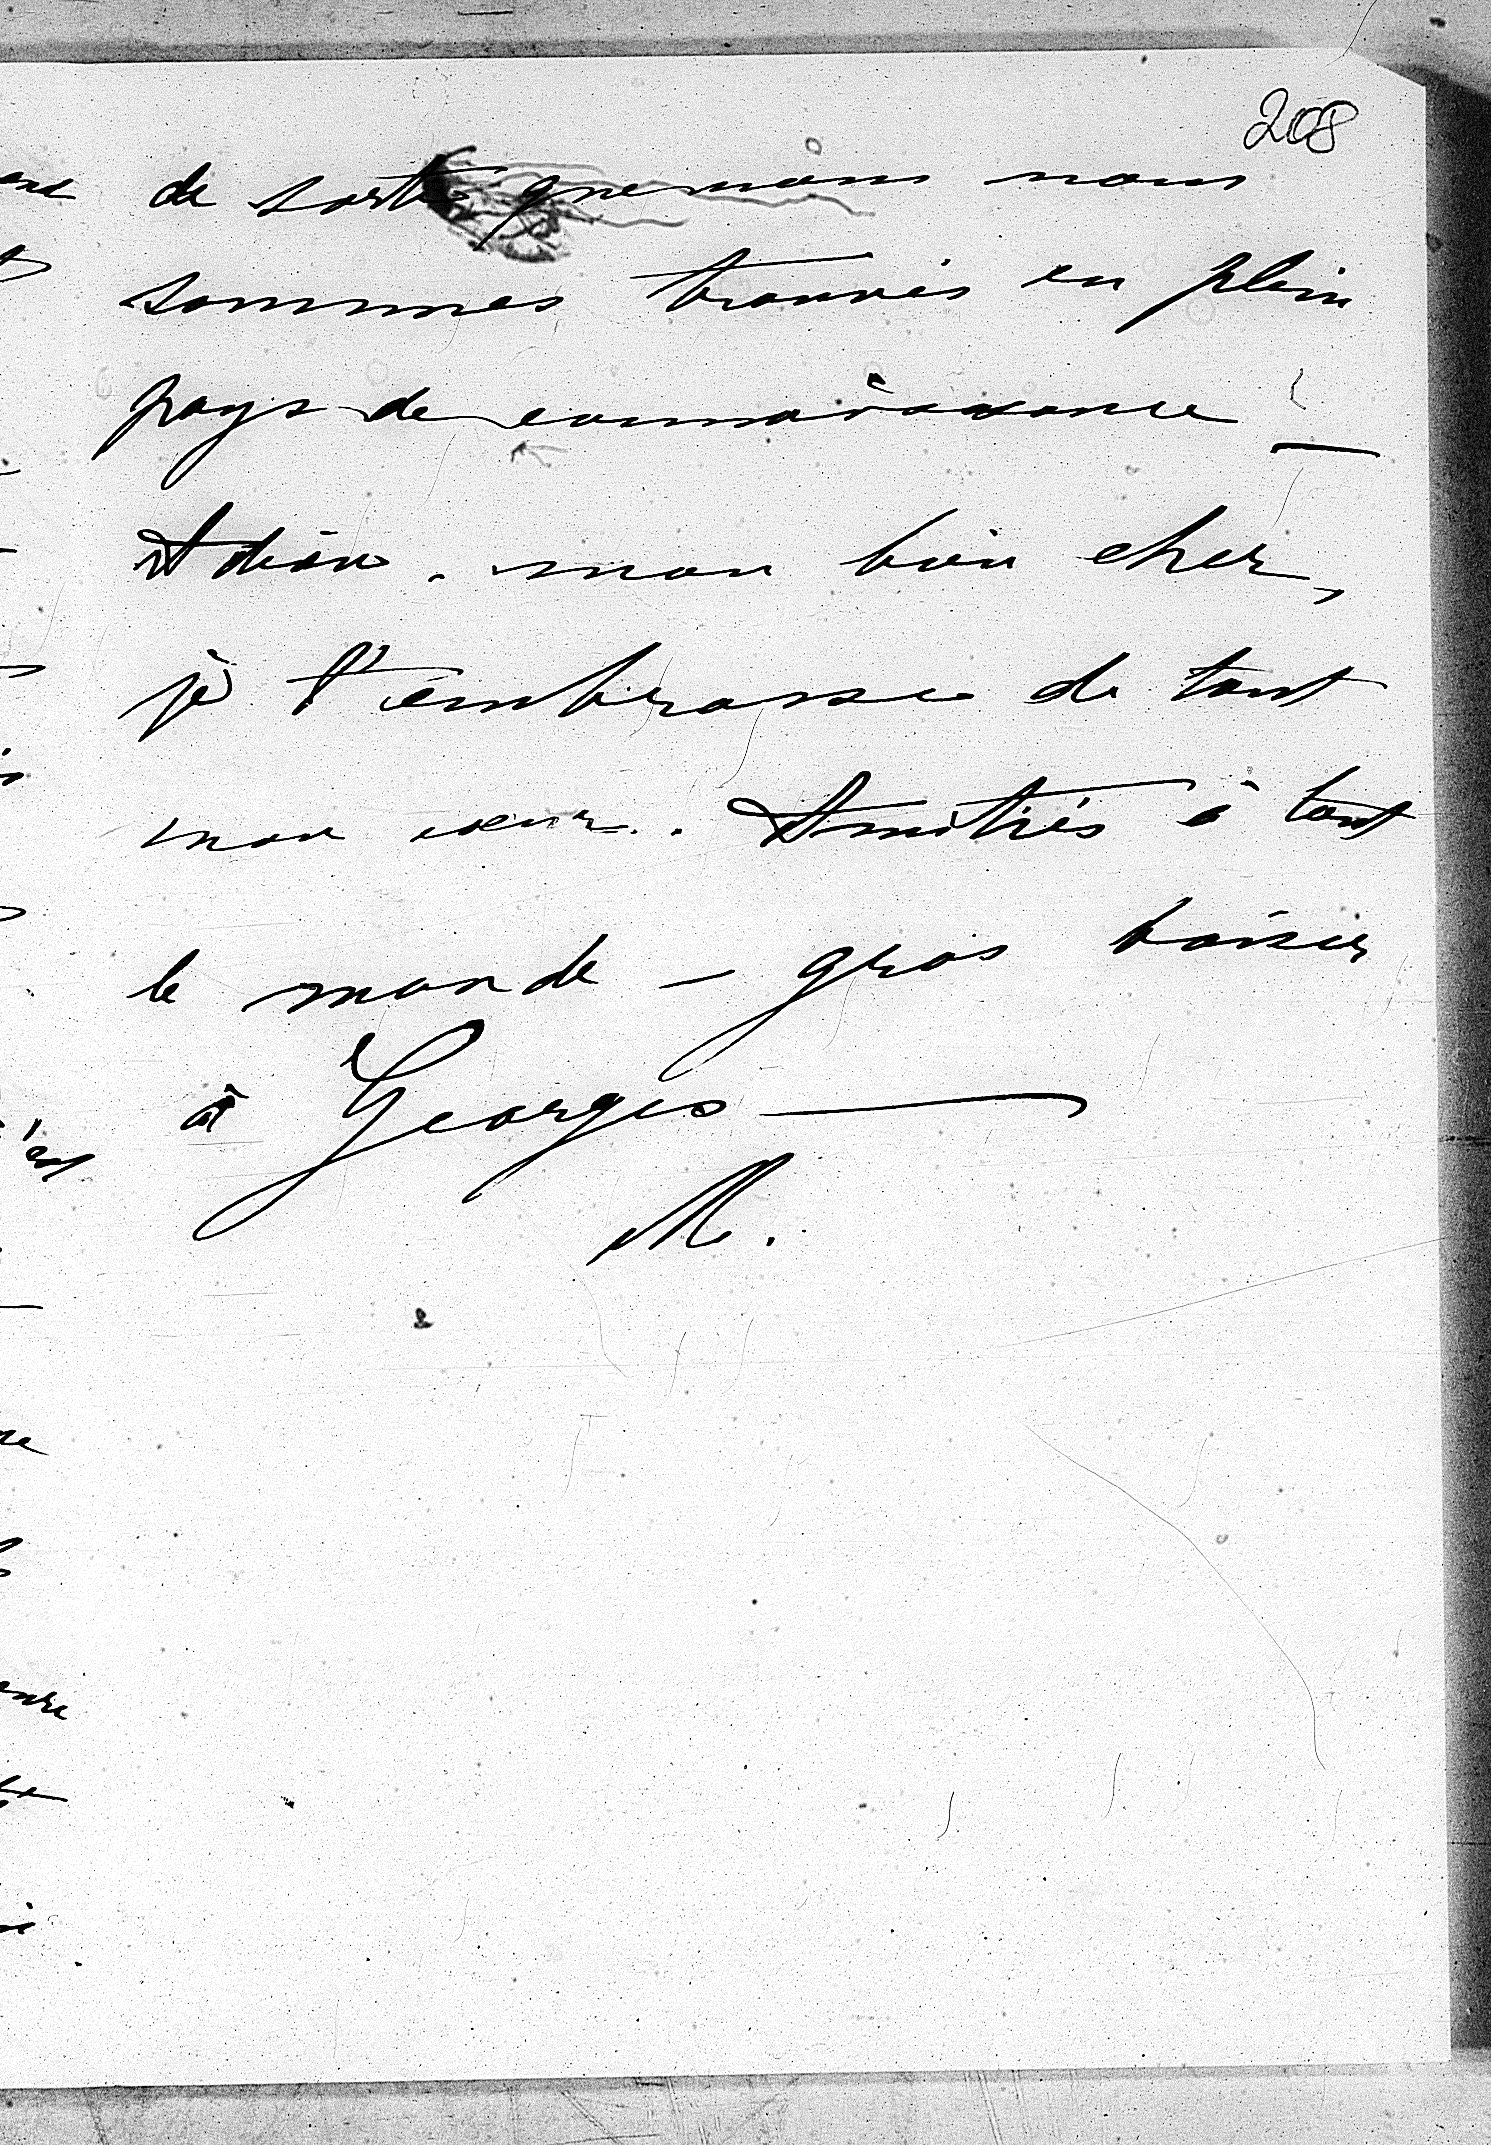 208
de sorte que nous nous
sommes trouvés en plein
pays de connaissance _
Adieu. mon bien cher,
je t'embrasse de tout
mon cœur. Amitiés à tout
le monde - gros baiser
à Georges —
M.